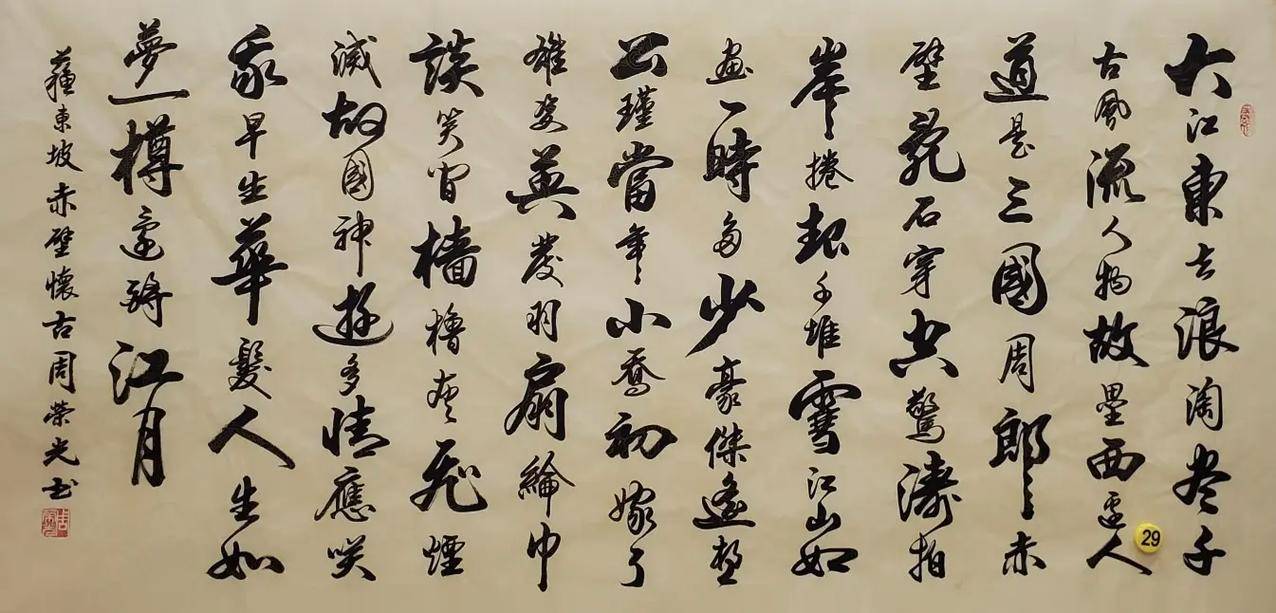 大江東去浪淘尽千
古風流人物故壘西邊人
道是三國周郎赤
壁亂石穿空驚濤拍
岸捲起千堆雪江山如
畫一時多少豪傑遙想
公瑾當年小喬初嫁了
雄姿英發羽扇綸巾
談笑間檣櫓灰飛煙
滅故國神遊多情應笑
我早生華髮人生如
夢一樽還酹江月
蘇東坡赤壁懷古周榮光书
29